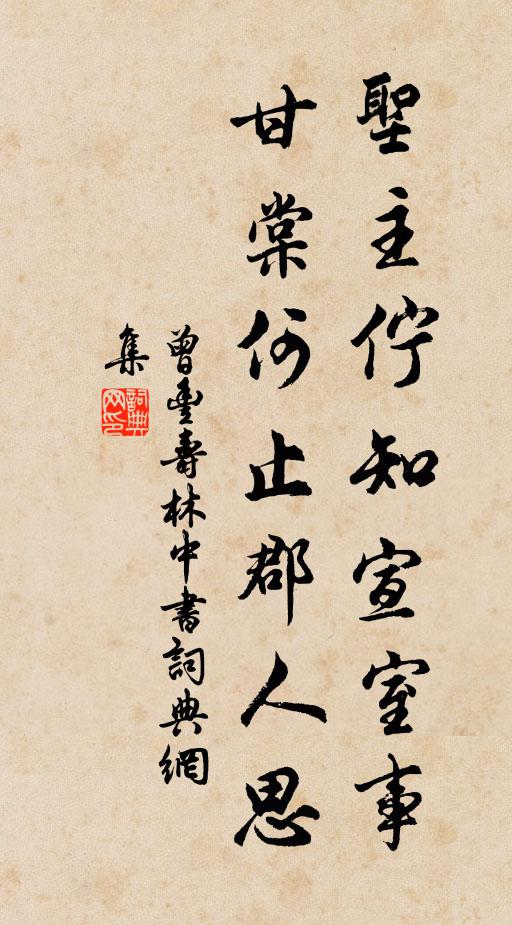 聖主佇知宣室事
甘棠何止郡人思
曾豐壽林中書詞典網
集
詞典
网印